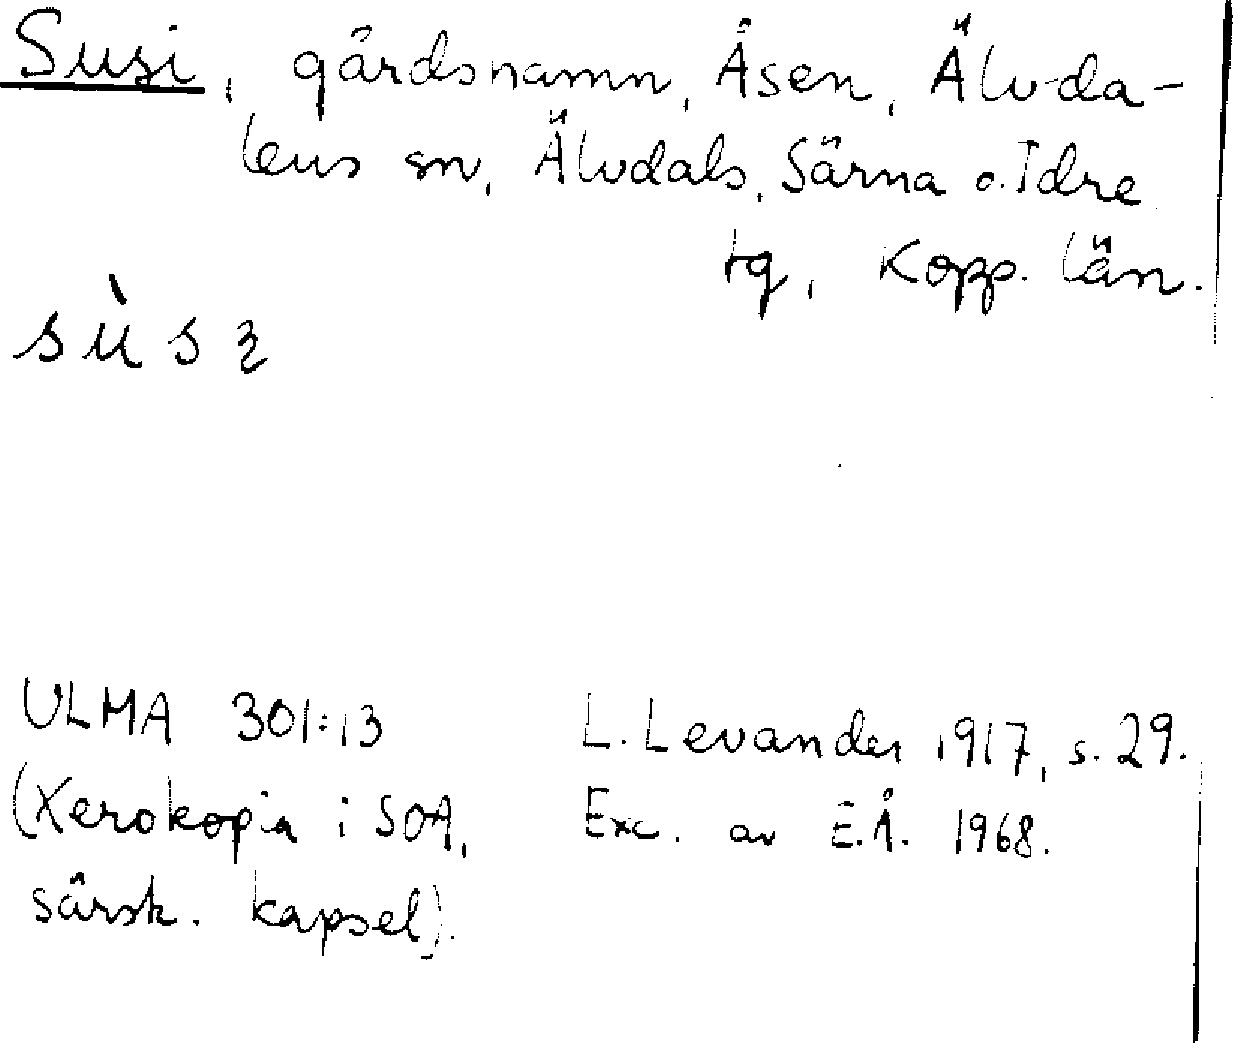 Susi, gårdsnamn, Åsen, Älvda-
lens sn, Älvdals, Särna o. Idre
tg, Kopp. län.
L. Levander 1917, s. 29.
ULMA 301:13
Exc. av E.Å. 1968.
(Xerokopia i SOA,
särsk. kapsel).